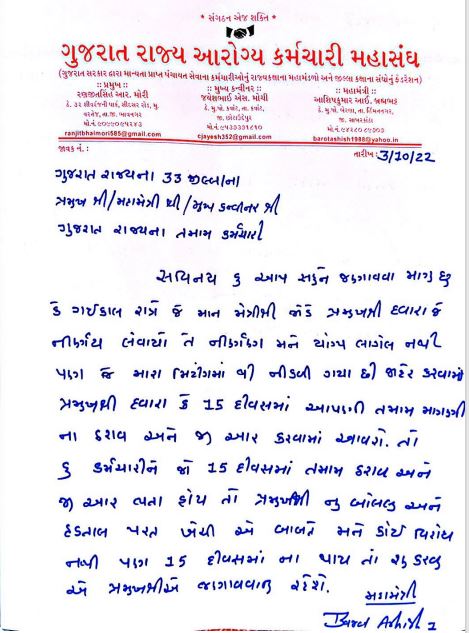 * સંગઠન એજ શક્તિ *
ગુજરાત રાજ્ય આરોગ્ય કર્મચારી મહાસંઘ
(ગુજરાત સરકાર દ્વારા માન્યતા પ્રાપ્ત પંચાયત સેવાના કર્મચારીઓનું રાજ્યકક્ષાના મહામંડળો અને જીલ્લા કક્ષાના સંઘોનું ફેડરેશન)
:: પ્રમુખ ::
રણજીતસિંહ આર. મોરી
ranjitbhaimori585@gmail.com
:: મુખ્ય કન્વીનર ::
જયેશભાઈ એસ. મોચી
જી.છોટાઉદેપુર
cjayesh352@gmail.com
:: મહામંત્રી ::
આશિષકુમાર આઈ. બ્રહ્મભટ્ટ
જી.સાબરકાંઠા
barotashish1988@yahoo.com
જાવક નં. :
તારીખ : 3/10/22
ગુજરાત રાજ્યના 33 જીલ્લાના
પ્રમુખ શ્રી/મહામંત્રી શ્રી/મુખ્ય કન્વીનર શ્રી
ગુજરાત રાજ્યના તમામ કર્મચારી
સવિનય હુ આપ સહુને જણાવવા માગુ છુ
કે ગઈકાલ રાત્રે જે માન મંત્રીશ્રી જોડે પ્રમુખશ્રી દ્વારા જે
નીર્ણય લેવાયો તે નીર્ણય મને યોગ્ય લાગેલ નથી
પણ જે મારા મિટીંગમાં થી નીકળી ગયા છી જાહેર કરવામાં
પ્રમુખશ્રી દ્વારા કે 15 દીવસમાં આપણી તમામ માગણી
ના ઠરાવ અને જી આર કરવામાં આવશે. તો
હુ કર્મચારીને જો 15 દીવસમાં તમામ ઠરાવ અને
જી આર થતા હોય તો પ્રમુખશ્રી નુ બોલવુ અને
હડતાલ પરત ખેચી એ બાબતે મને કોઈ વિરોધ
નથી પણ 15 દીવસમાં ના થાય તો શુ કરવુ
એ પ્રમુખશ્રીએ જણાવવાનુ રહેશે.
મહામંત્રી